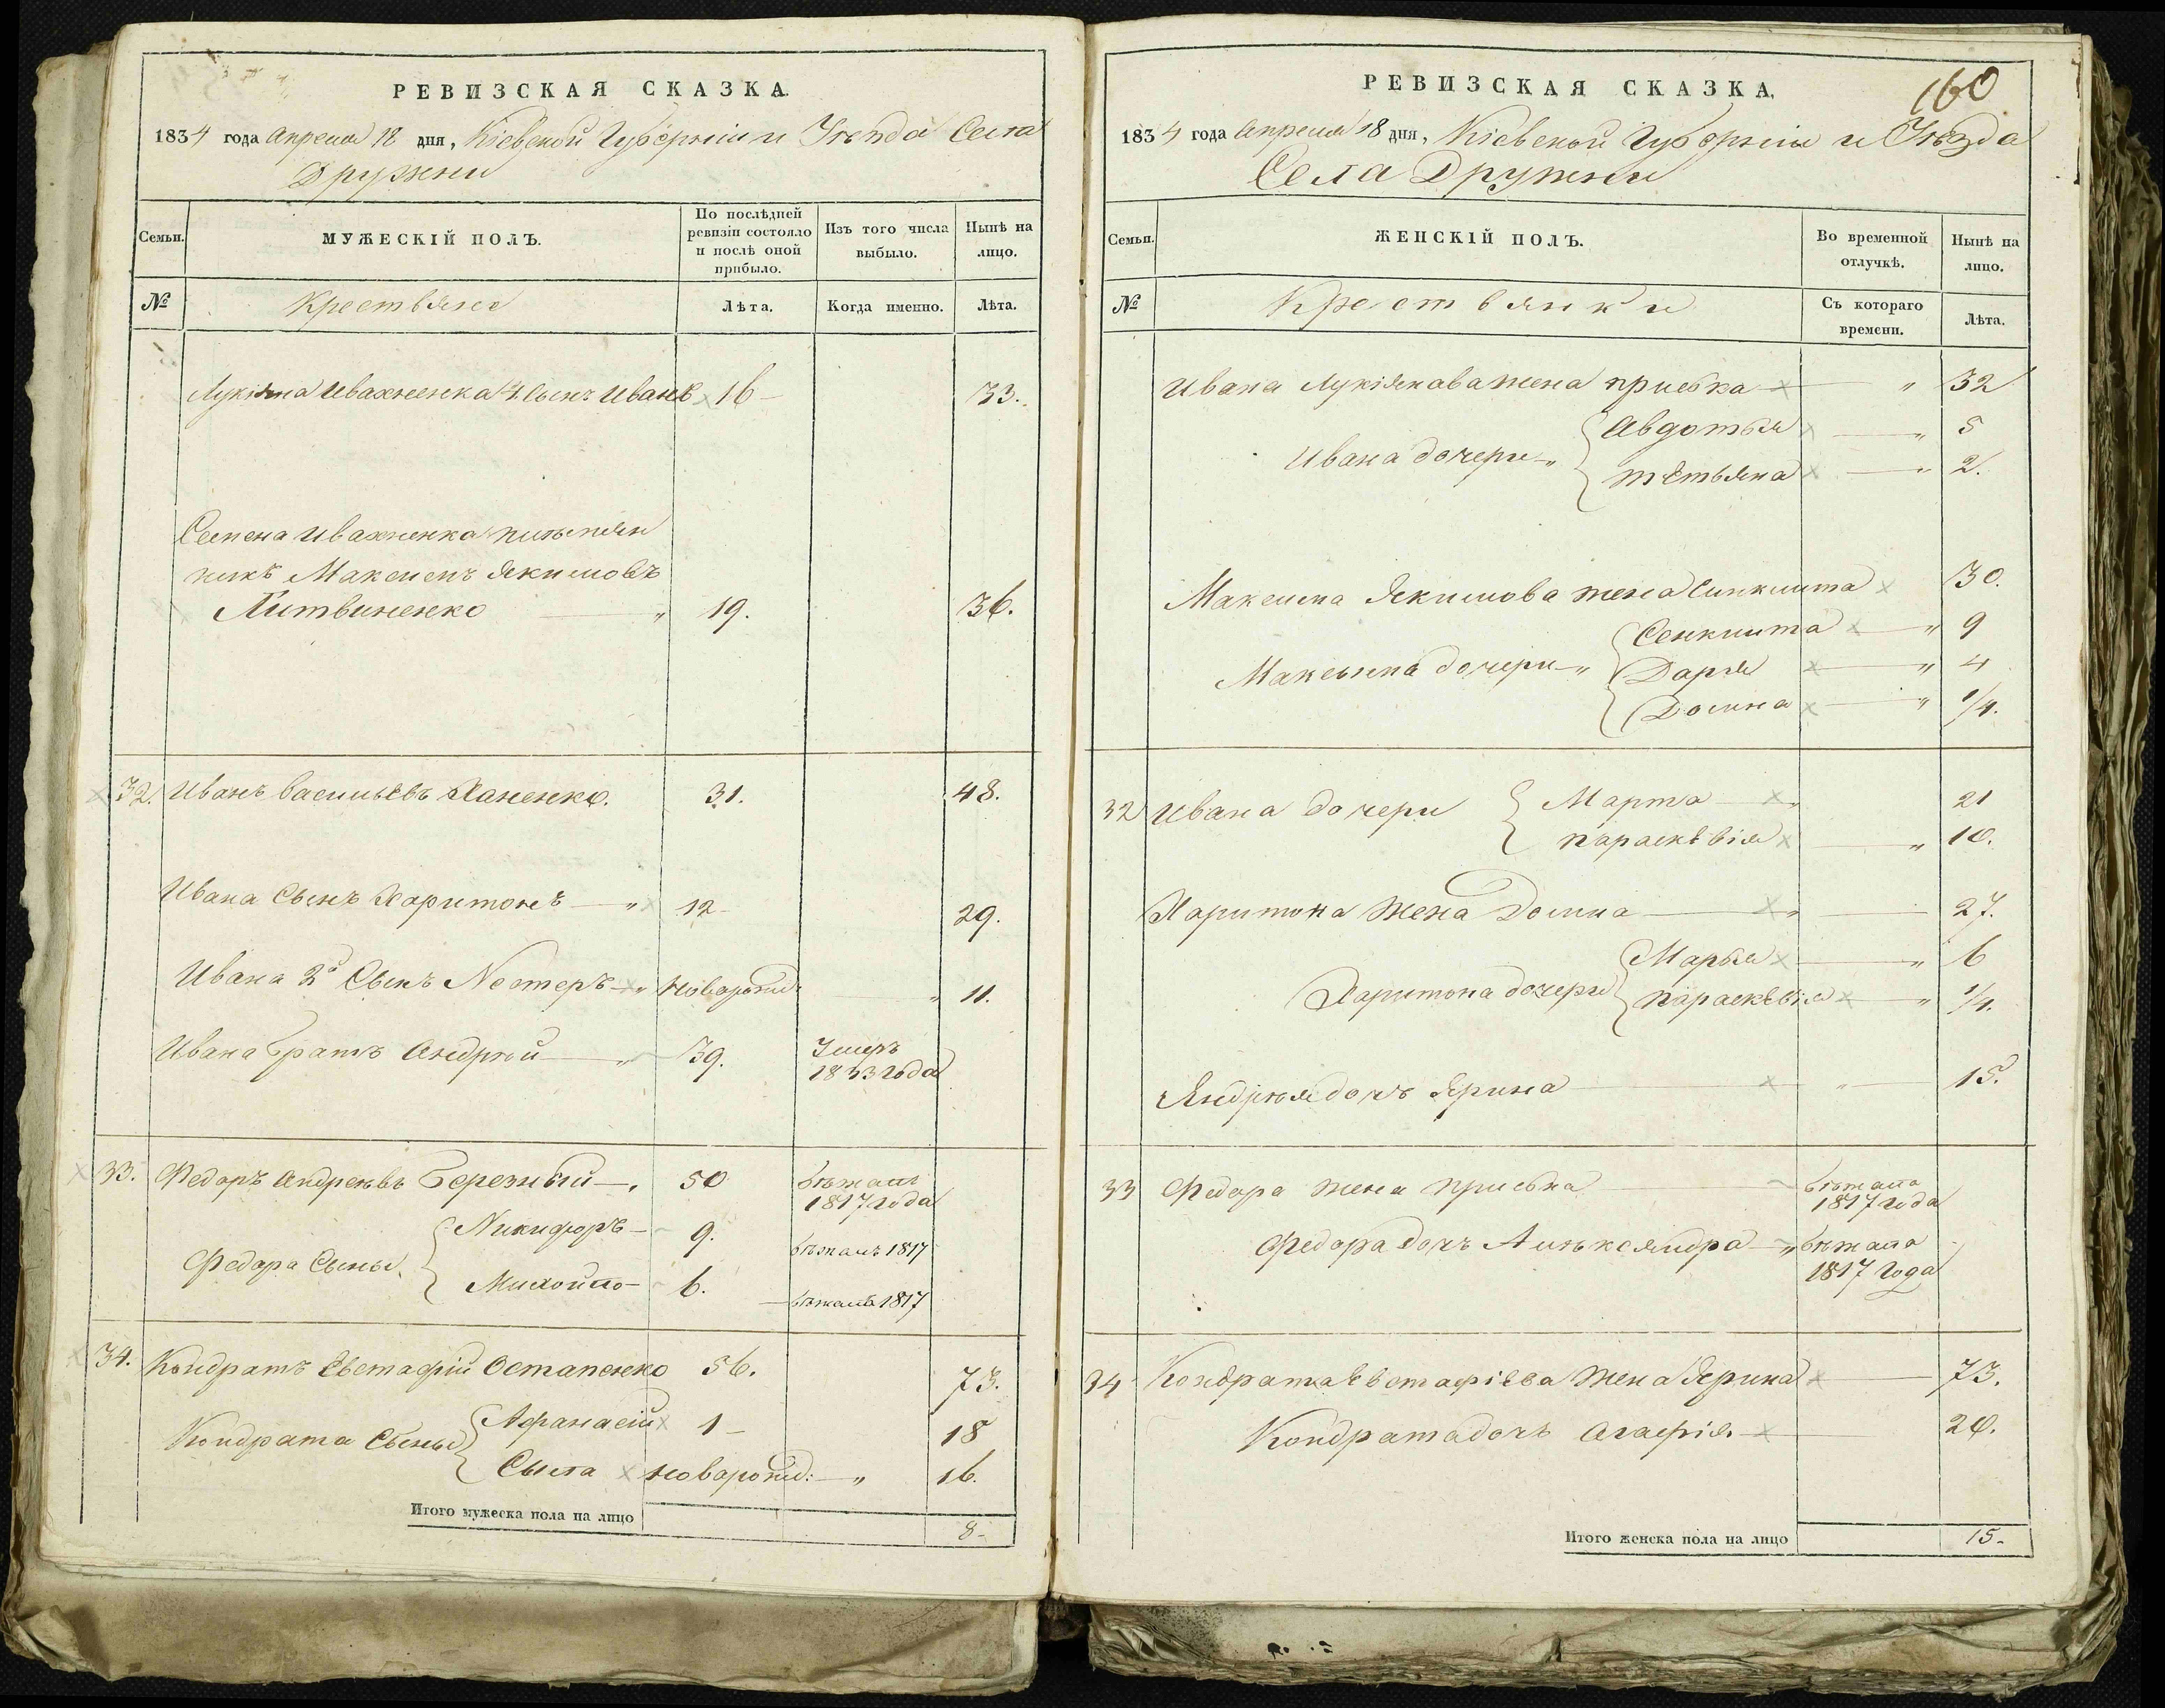 РЕВИЗСКАЯ СКАЗКА.
1834 года Апреля 18 дня, Кіевской Губерніи и Уѣзда Села
Дружни
Семьи.
МУЖЕСКІЙ ПОЛЪ.
По послѣдней
ревизіи состояло
и послѣ оной
прибыло.
Изъ того числа
выбыло.
Нынѣ на
лицо.
№
Крестьяне
Лѣта.
Когда именно.
Лѣта.
Лукіяна Ивахненка 4. Сынъ Иванъ 16 33.
Семена Ивахненка племян
никъ Максимъ Якимовъ
Литвиненко 19. 36.
32. Иванъ Васильевъ Ханенко. 31. 48.
Ивана Сынъ Харитонъ 12 29.
Ивана 2й Сынъ Нестеръ новорожд: 11.
Ивана братъ Андрей 39. Умеръ
1833 года
33. Федоръ Андреевъ Березный 50 бѣжалъ
1817 года
Федора Сыны Никифоръ 9. бѣжалъ 1817
Михойло 6. бѣжалъ 1817
34. Кондратъ Евстафій Остапенко 56. 73.
Кондрата Сыны Афанасій 1 18
Сыла новорожд: 16.
Итого мужеска пола на лицо 8
РЕВИЗСКАЯ СКАЗКА.
160
1834 года Апреля 18 дня, Кіевской Губерніи и Уѣзда
Села Дружни
Семьи.
ЖЕНСКІЙ ПОЛЪ.
Во временной
отлучкѣ.
Нынѣ на
лицо.
№
Крестьянки
Съ котораго
времени.
Лѣта.
Ивана Лукіянова жена Приська 32
Ивана дочери Авдотья 5
Тетьяна 2.
Максима Якимова жена Синклита 30.
Максима дочери Сенклита 9
Дарія 4
Домна 1/4.
32 Ивана дочери Марта 21
Параскевія 10.
Харитона жена Домна 27.
Харитона дочери Марья 6
Параскевія 1/4.
Андрея дочь Ярина 15.
33 Федора жена Приська бѣжала
1817 года
Федора дочь Алькояндра бѣжала
1817 года
34 Кондрата Евстафіева жена Ярина 73.
Кондрата дочь Агафія 20.
Итого женска пола на лицо 15